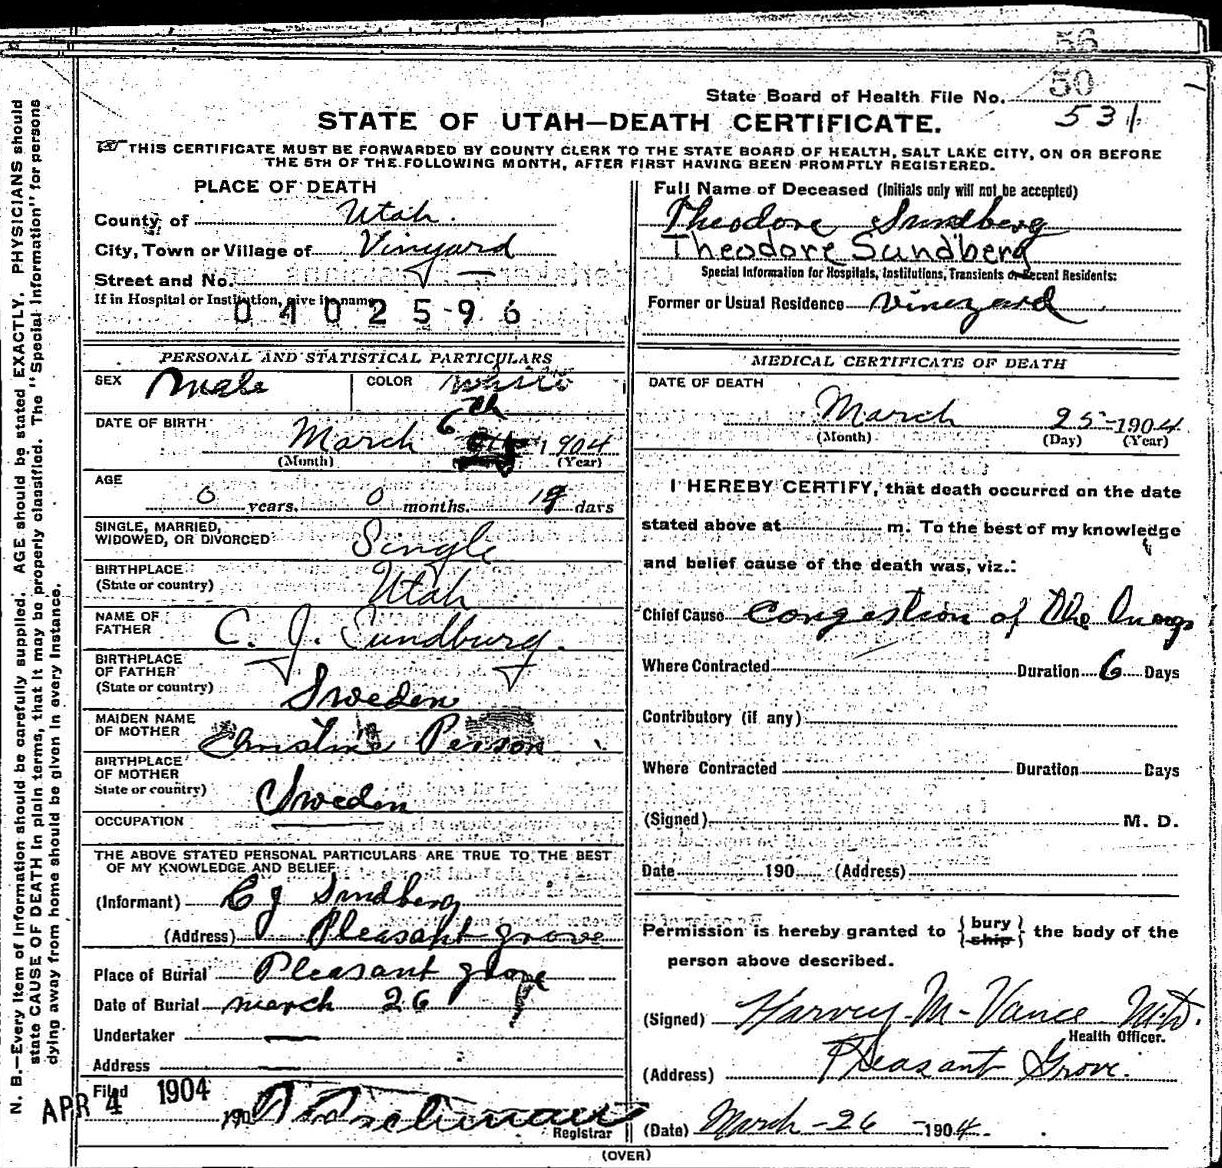 56
50
State Board of Health File No.
531
STATE OF UTAH—DEATH CERTIFICATE.
THIS CERTIFICATE MUST BE FORWARDED BY COUNTY CLERK TO THE STATE BOARD OF HEALTH, SALT LAKE CITY, ON OR BEFORE
THE 5TH OF THE FOLLOWING MONTH, AFTER FIRST HAVING BEEN PROMPTLY REGISTERED.
PLACE OF DEATH
County of Utah.
City, Town or Village of Vinyard
Street and No. —
If in Hospital or Institution, give its name
0402596
Full Name of Deceased (Initials only will not be accepted)
Theodore Sundberg
Theodore Sundberg
Special Information for Hospitals, Institutions, Transients or Recent Residents:
Former or Usual Residence Vineyard
PERSONAL AND STATISTICAL PARTICULARS
SEX Male COLOR White
DATE OF BIRTH March 6th 1904
(Month) (Year)
AGE
0 years. 0 months. 19 days
SINGLE, MARRIED,
WIDOWED, OR DIVORCED Single
BIRTHPLACE
(State or country) Utah
NAME OF
FATHER C. J. Sundburg.
BIRTHPLACE
OF FATHER
(State or country) Sweden
MAIDEN NAME
OF MOTHER Christine Person
BIRTHPLACE
OF MOTHER
State or country) Sweden
OCCUPATION
THE ABOVE STATED PERSONAL PARTICULARS ARE TRUE TO THE BEST
OF MY KNOWLEDGE AND BELIEF
(Informant) C J Sundberg
(Address) Pleasant grove
Place of Burial Pleasant grove
Date of Burial march 26
Undertaker —
Address —
Filed APR 4 1904
190
Registrar
MEDICAL CERTIFICATE OF DEATH
DATE OF DEATH
March 25-1904
(Month) (Day) (Year)
I HEREBY CERTIFY, that death occurred on the date
stated above at m. To the best of my knowledge
and belief cause of the death was, viz.:
Chief Cause Congestion of the lungs
Where Contracted Duration 6 Days
Contributory (if any)
Where Contracted Duration Days
(Signed) M. D.
Date 190 (Address)
Permission is hereby granted to {bury ship} the body of the
person above described.
(Signed) Harvey M-Vance M.D.
Health Officer.
(Address) Pleasant Grove.
(Date) March-26-1904.
(OVER)
N. B.—Every item of information should be carefully supplied. AGE should be stated EXACTLY. PHYSICIANS should
state CAUSE OF DEATH in plain terms, that it may be properly classified. The "Special Information" for persons
dying away from home should be given in every instance.